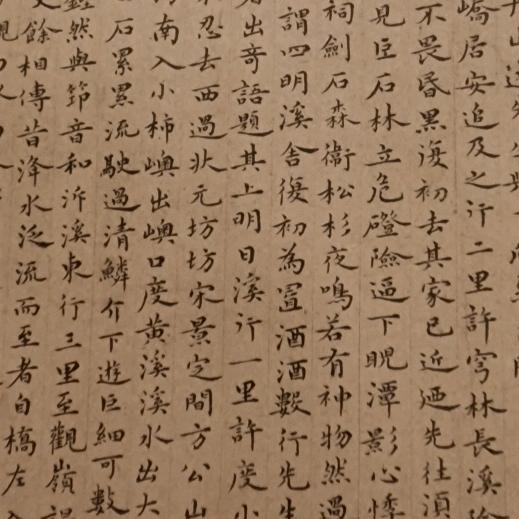 嶠居安追及之行二里許穹林長溪
不畏昏黑復初去其家已近迺先往湏
見巨石林立危磴險逼下睨潭影心悸
祠劍石森衛松杉夜鳴若有神物然過
謂四明溪舍復初為置酒酒數行先生
出奇語題其上明日溪行一里許度小
忍去西過狀元坊坊宋景定間方公山
南入小柿嶼出嶼口度黃溪溪水出大
石累累流駛過清鱗介下遊巨細可數
然與節音和泝溪東行三里至觀嶺
餘相傳昔洚水泛流而至者自橋左